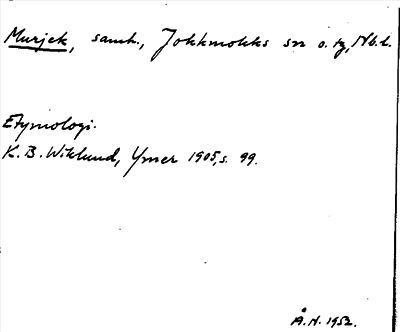 Murjek, samh., Jokkmokks sn o. tg, Nb.l.
Etymologi.
K. B. Wiklund, Ymer 1905, s. 99.
Å.N. 1952.